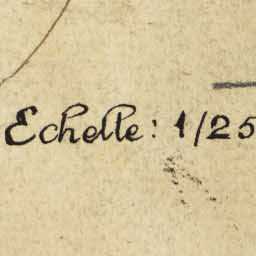 Echelle: 1/25